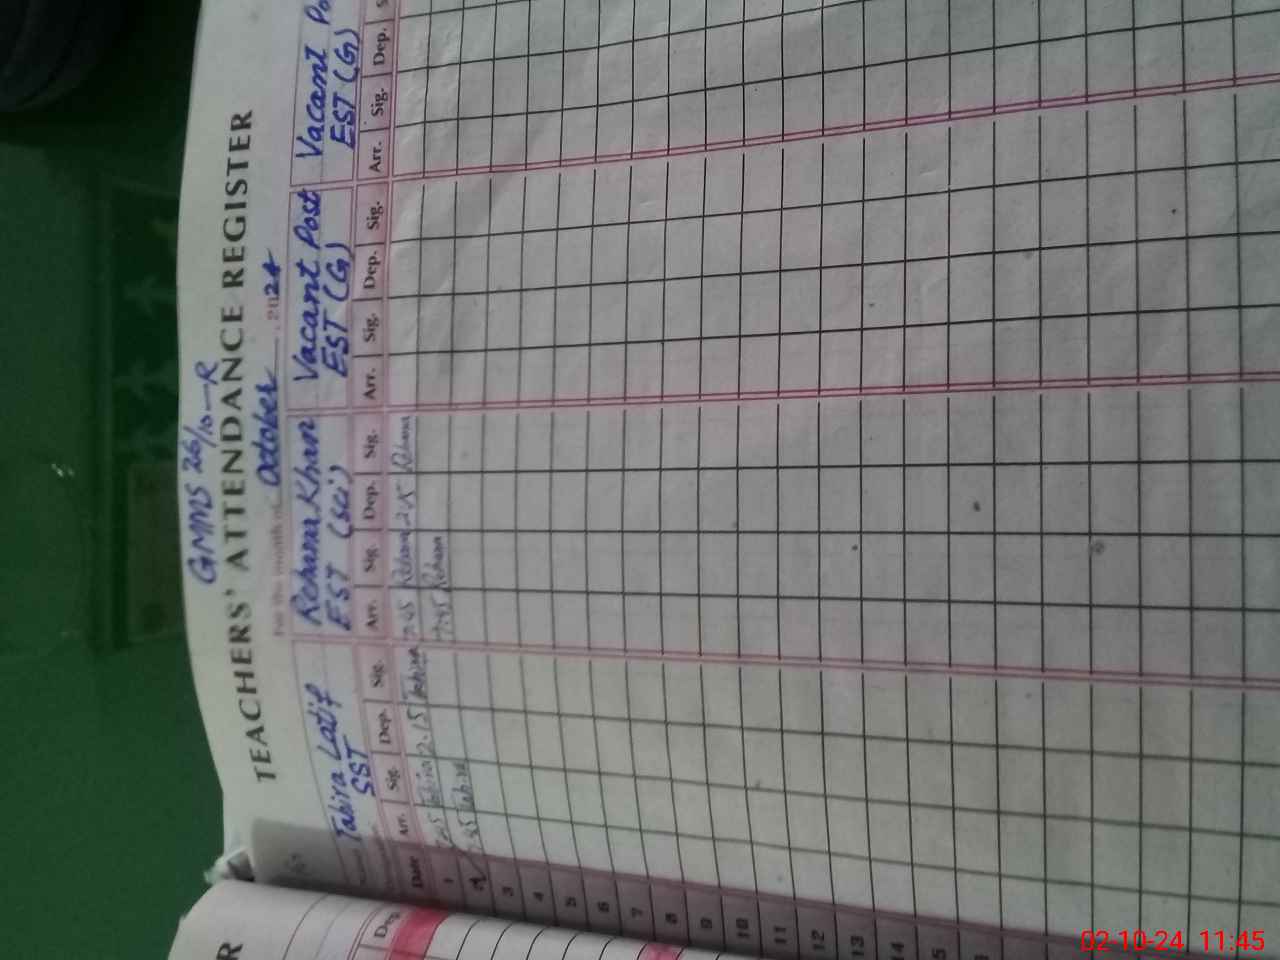 GMMS 26/10-R
TEACHERS' ATTENDANCE REGISTER
For the month of October, 2024
Tahira Latif Rehana Khan Vacant Post Vacant Po
SST EST (sci) EST (G) EST (G)
Date Arr. Sig. Dep. Sig. Arr. Sig. Dep. Sig. Arr. Sig. Dep. Sig. Arr. Sig. Dep. S
1 7.45 Tahira 2.15 Tahira 7.45 Rehana 2.15 Rehana
2 7.45 Tahira 7.45 Rehana
3
4
5
6
7
8
9
10
11
12
13
14
15
R
Dep.
02-10-24 11:45